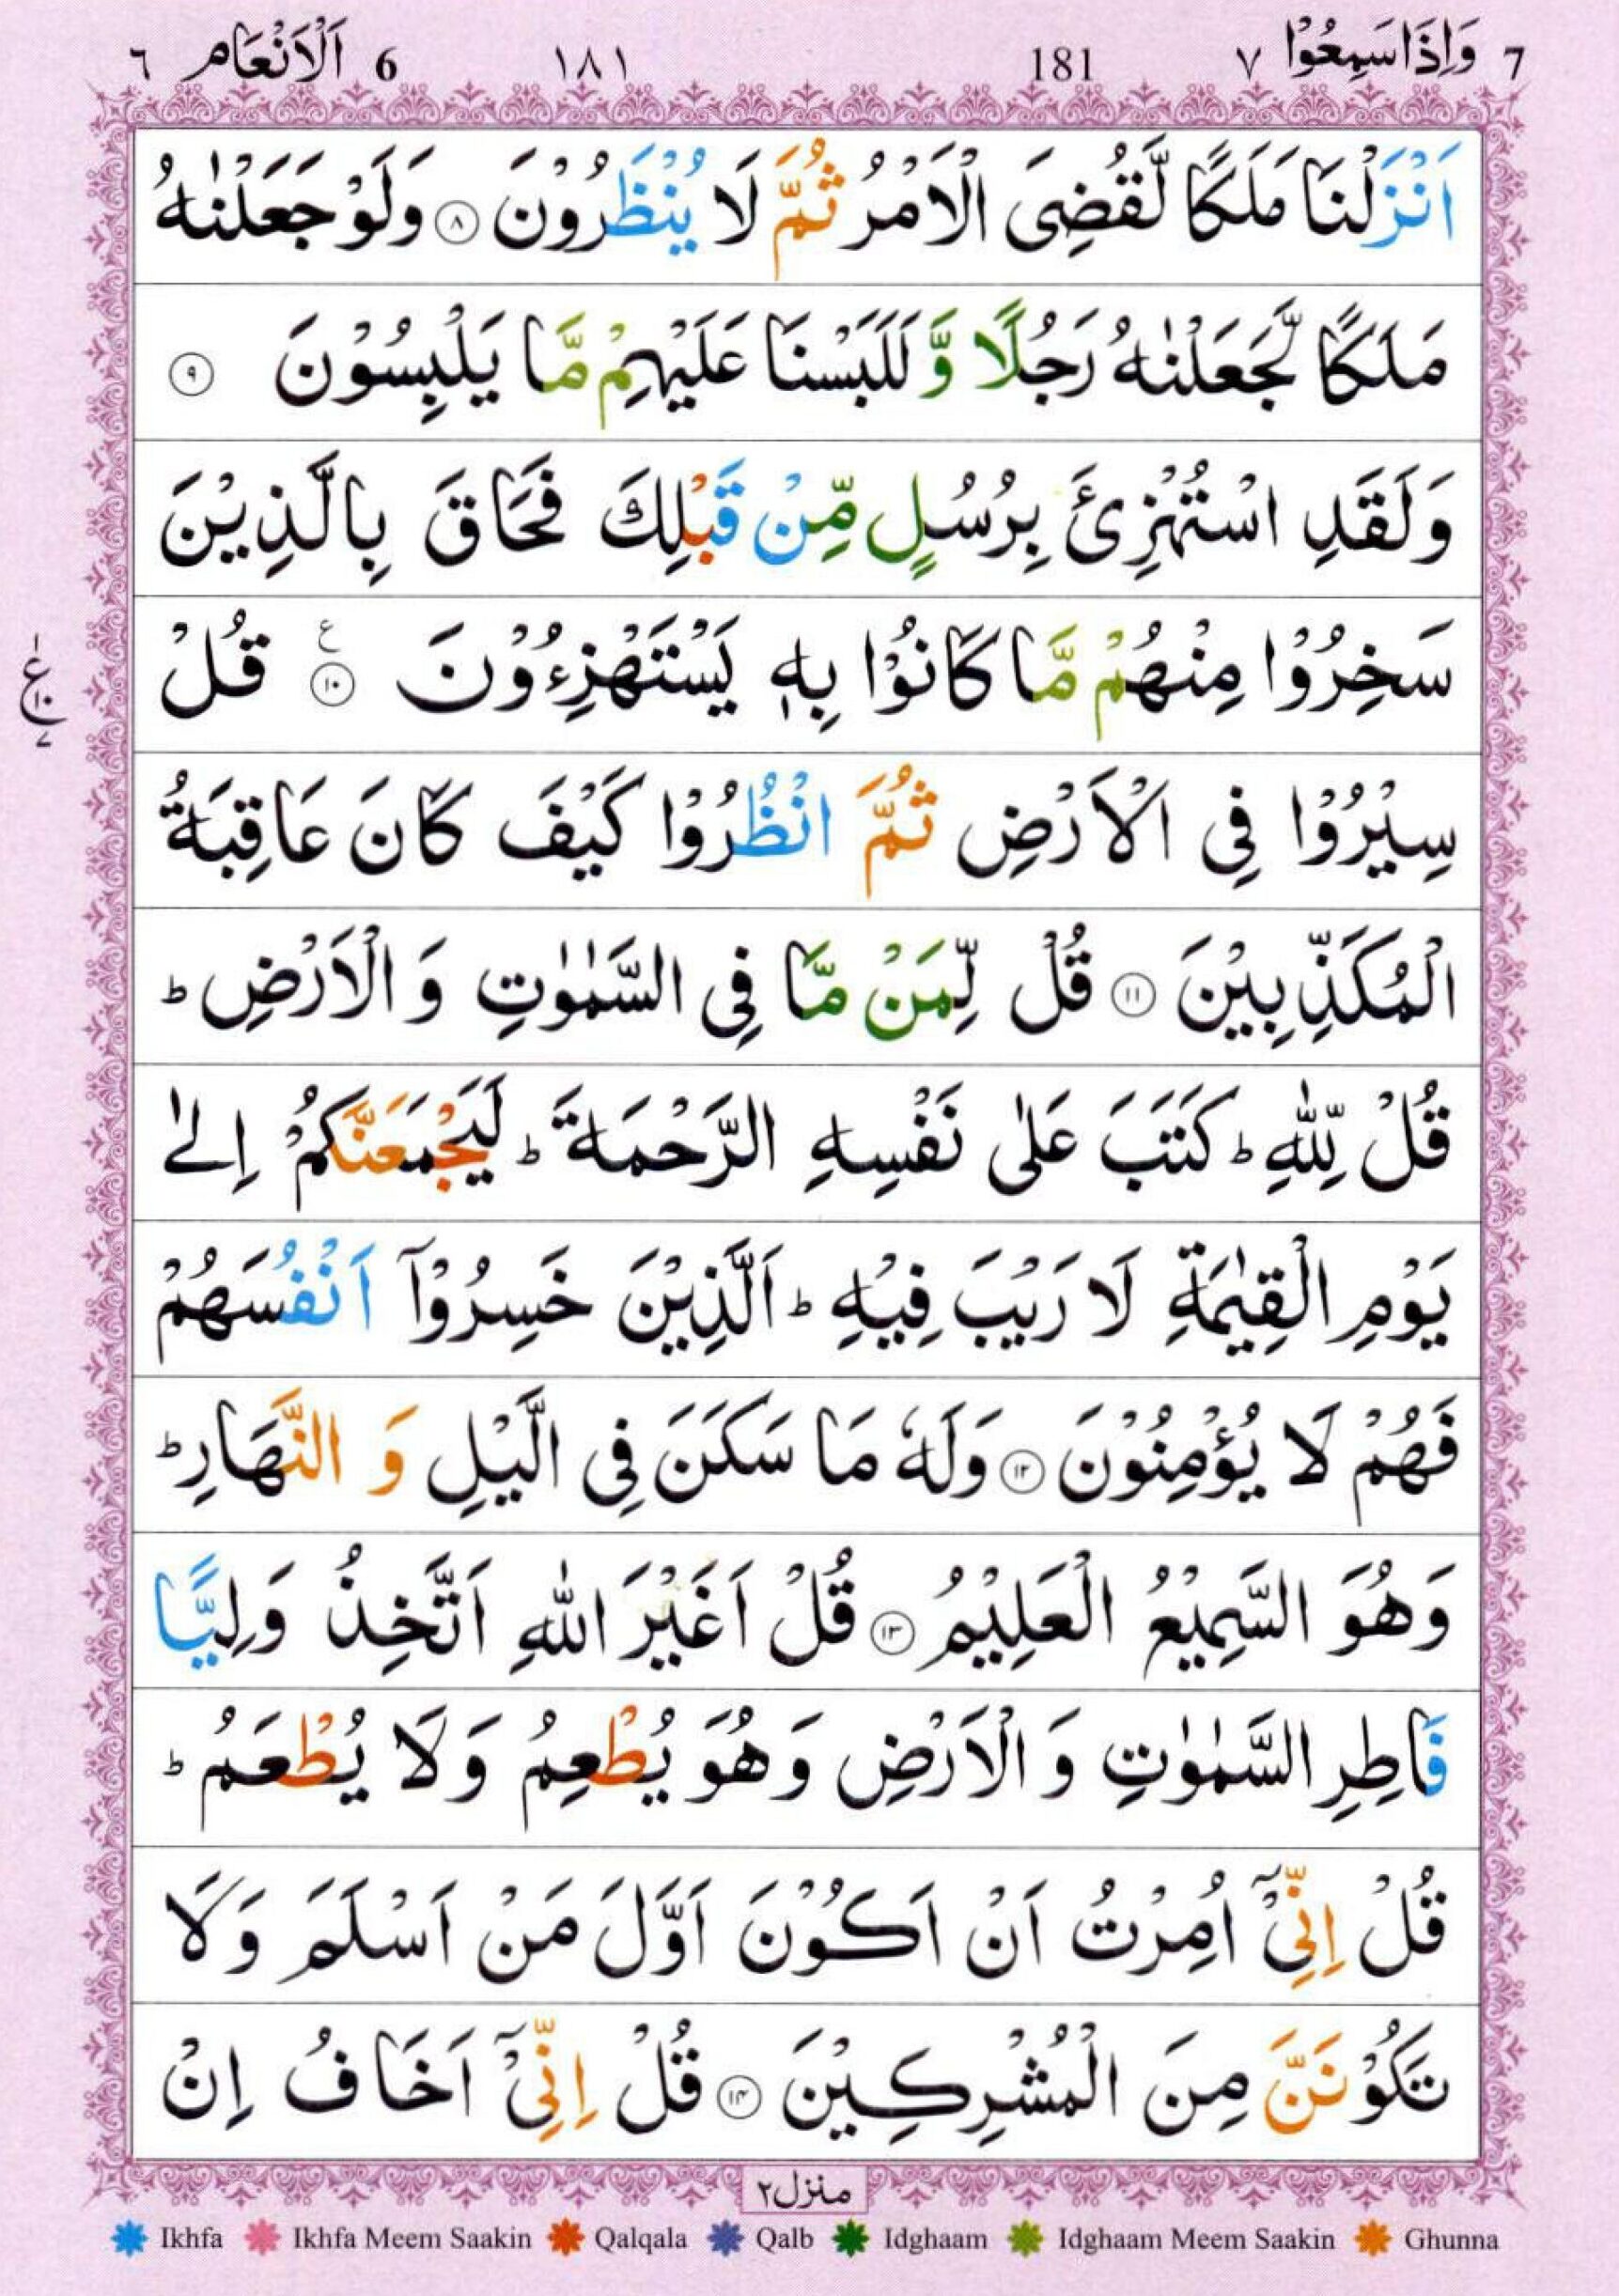 7 وَاِذَا سَمِعُوْا ٧ 181 ١٨١ 6 اَلْاَنْعَام ٦
اَنْزَلْنَا مَلَكًا لَّقُضِىَ الْاَمْرُ ثُمَّ لَا يُنْظَرُوْنَ ۝٨ وَلَوْ جَعَلْنٰهُ
مَلَكًا لَّجَعَلْنٰهُ رَجُلًا وَّ لَلَبَسْنَا عَلَيْهِمْ مَّا يَلْبِسُوْنَ ۝٩
وَلَقَدِ اسْتُهْزِئَ بِرُسُلٍ مِّنْ قَبْلِكَ فَحَاقَ بِالَّذِيْنَ
سَخِرُوْا مِنْهُمْ مَّا كَانُوْا بِهٖ يَسْتَهْزِءُوْنَ ۝١٠ ع قُلْ
سِيْرُوْا فِى الْاَرْضِ ثُمَّ انْظُرُوْا كَيْفَ كَانَ عَاقِبَةُ
الْمُكَذِّبِيْنَ ۝١١ قُلْ لِّمَنْ مَّا فِى السَّمٰوٰتِ وَ الْاَرْضِ ؕ
قُلْ لِّلّٰهِ ؕ كَتَبَ عَلٰى نَفْسِهِ الرَّحْمَةَ ؕ لَيَجْمَعَنَّكُمْ اِلٰى
يَوْمِ الْقِيٰمَةِ لَا رَيْبَ فِيْهِ ؕ اَلَّذِيْنَ خَسِرُوْۤا اَنْفُسَهُمْ
فَهُمْ لَا يُؤْمِنُوْنَ ۝١٢ وَلَهٗ مَا سَكَنَ فِى الَّيْلِ وَ النَّهَارِ ؕ
وَهُوَ السَّمِيْعُ الْعَلِيْمُ ۝١٣ قُلْ اَغَيْرَ اللّٰهِ اَتَّخِذُ وَلِيًّا
فَاطِرِ السَّمٰوٰتِ وَ الْاَرْضِ وَهُوَ يُطْعِمُ وَلَا يُطْعَمُ ؕ
قُلْ اِنِّىْۤ اُمِرْتُ اَنْ اَكُوْنَ اَوَّلَ مَنْ اَسْلَمَ وَلَا
تَكُوْنَنَّ مِنَ الْمُشْرِكِيْنَ ۝١٤ قُلْ اِنِّىْۤ اَخَافُ اِنْ
١ ع ١٠ ٧
منزل٢
Ikhfa Ikhfa Meem Saakin Qalqala Qalb Idghaam Idghaam Meem Saakin Ghunna